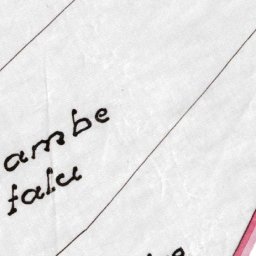 ambe
falu